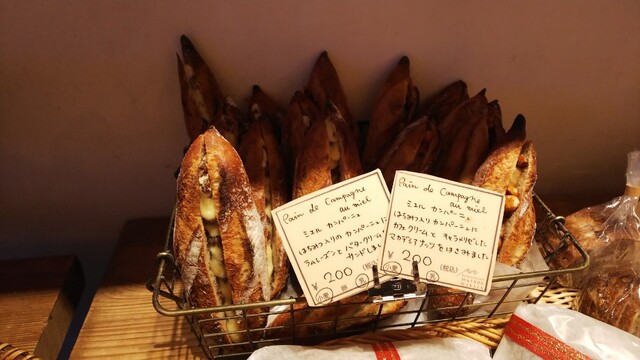 Pain de Campagne
au miel
ミエル カンパーニュ
はちみつ入りの カンパーニュに
ラムレーズンと バタークリームを
サンドしました
¥200
小麦
Pain de Campagne
au miel
ミエル カンパーニュ
はちみつ入り カンパーニュに
カフェクリームと キャラメリゼした
マカデミアナッツ をはさみました
¥200 (税込)
小麦 乳